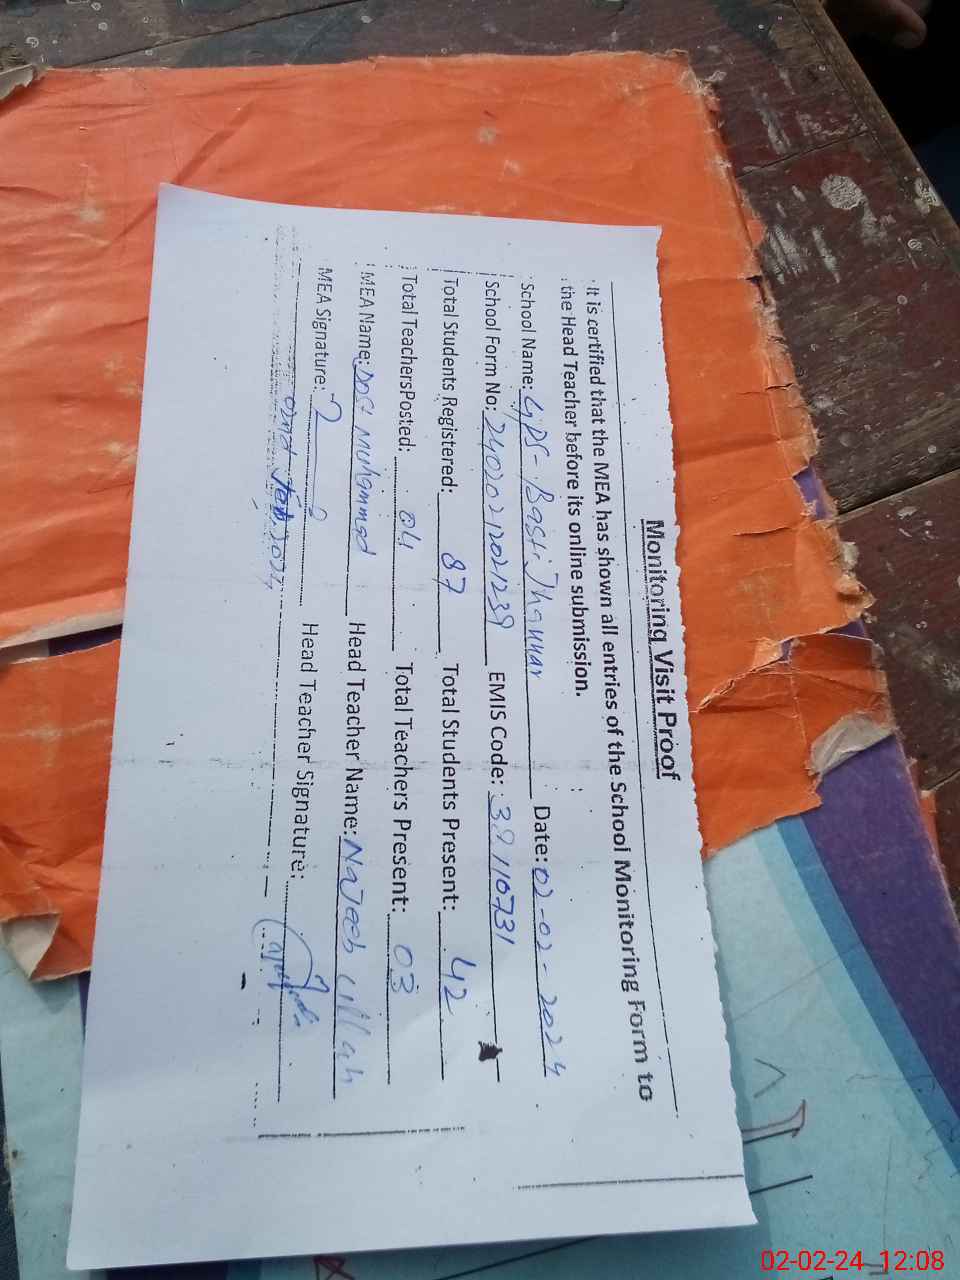 Monitoring Visit Proof
It is certified that the MEA has shown all entries of the School Monitoring Form to
the Head Teacher before its online submission.
School Name: GPS-Basti Jhanwar Date: 02-02-2024
School Form No: 24020212021239 EMIS Code: 38110731
Total Students Registered: 87 Total Students Present: 42
Total Teachers Posted: 04 Total Teachers Present: 03
MEA Name: Dost Muhammad Head Teacher Name: Najeeb Ullah
MEA Signature: Head Teacher Signature:
02nd Feb, 2024
02-02-24 12:08